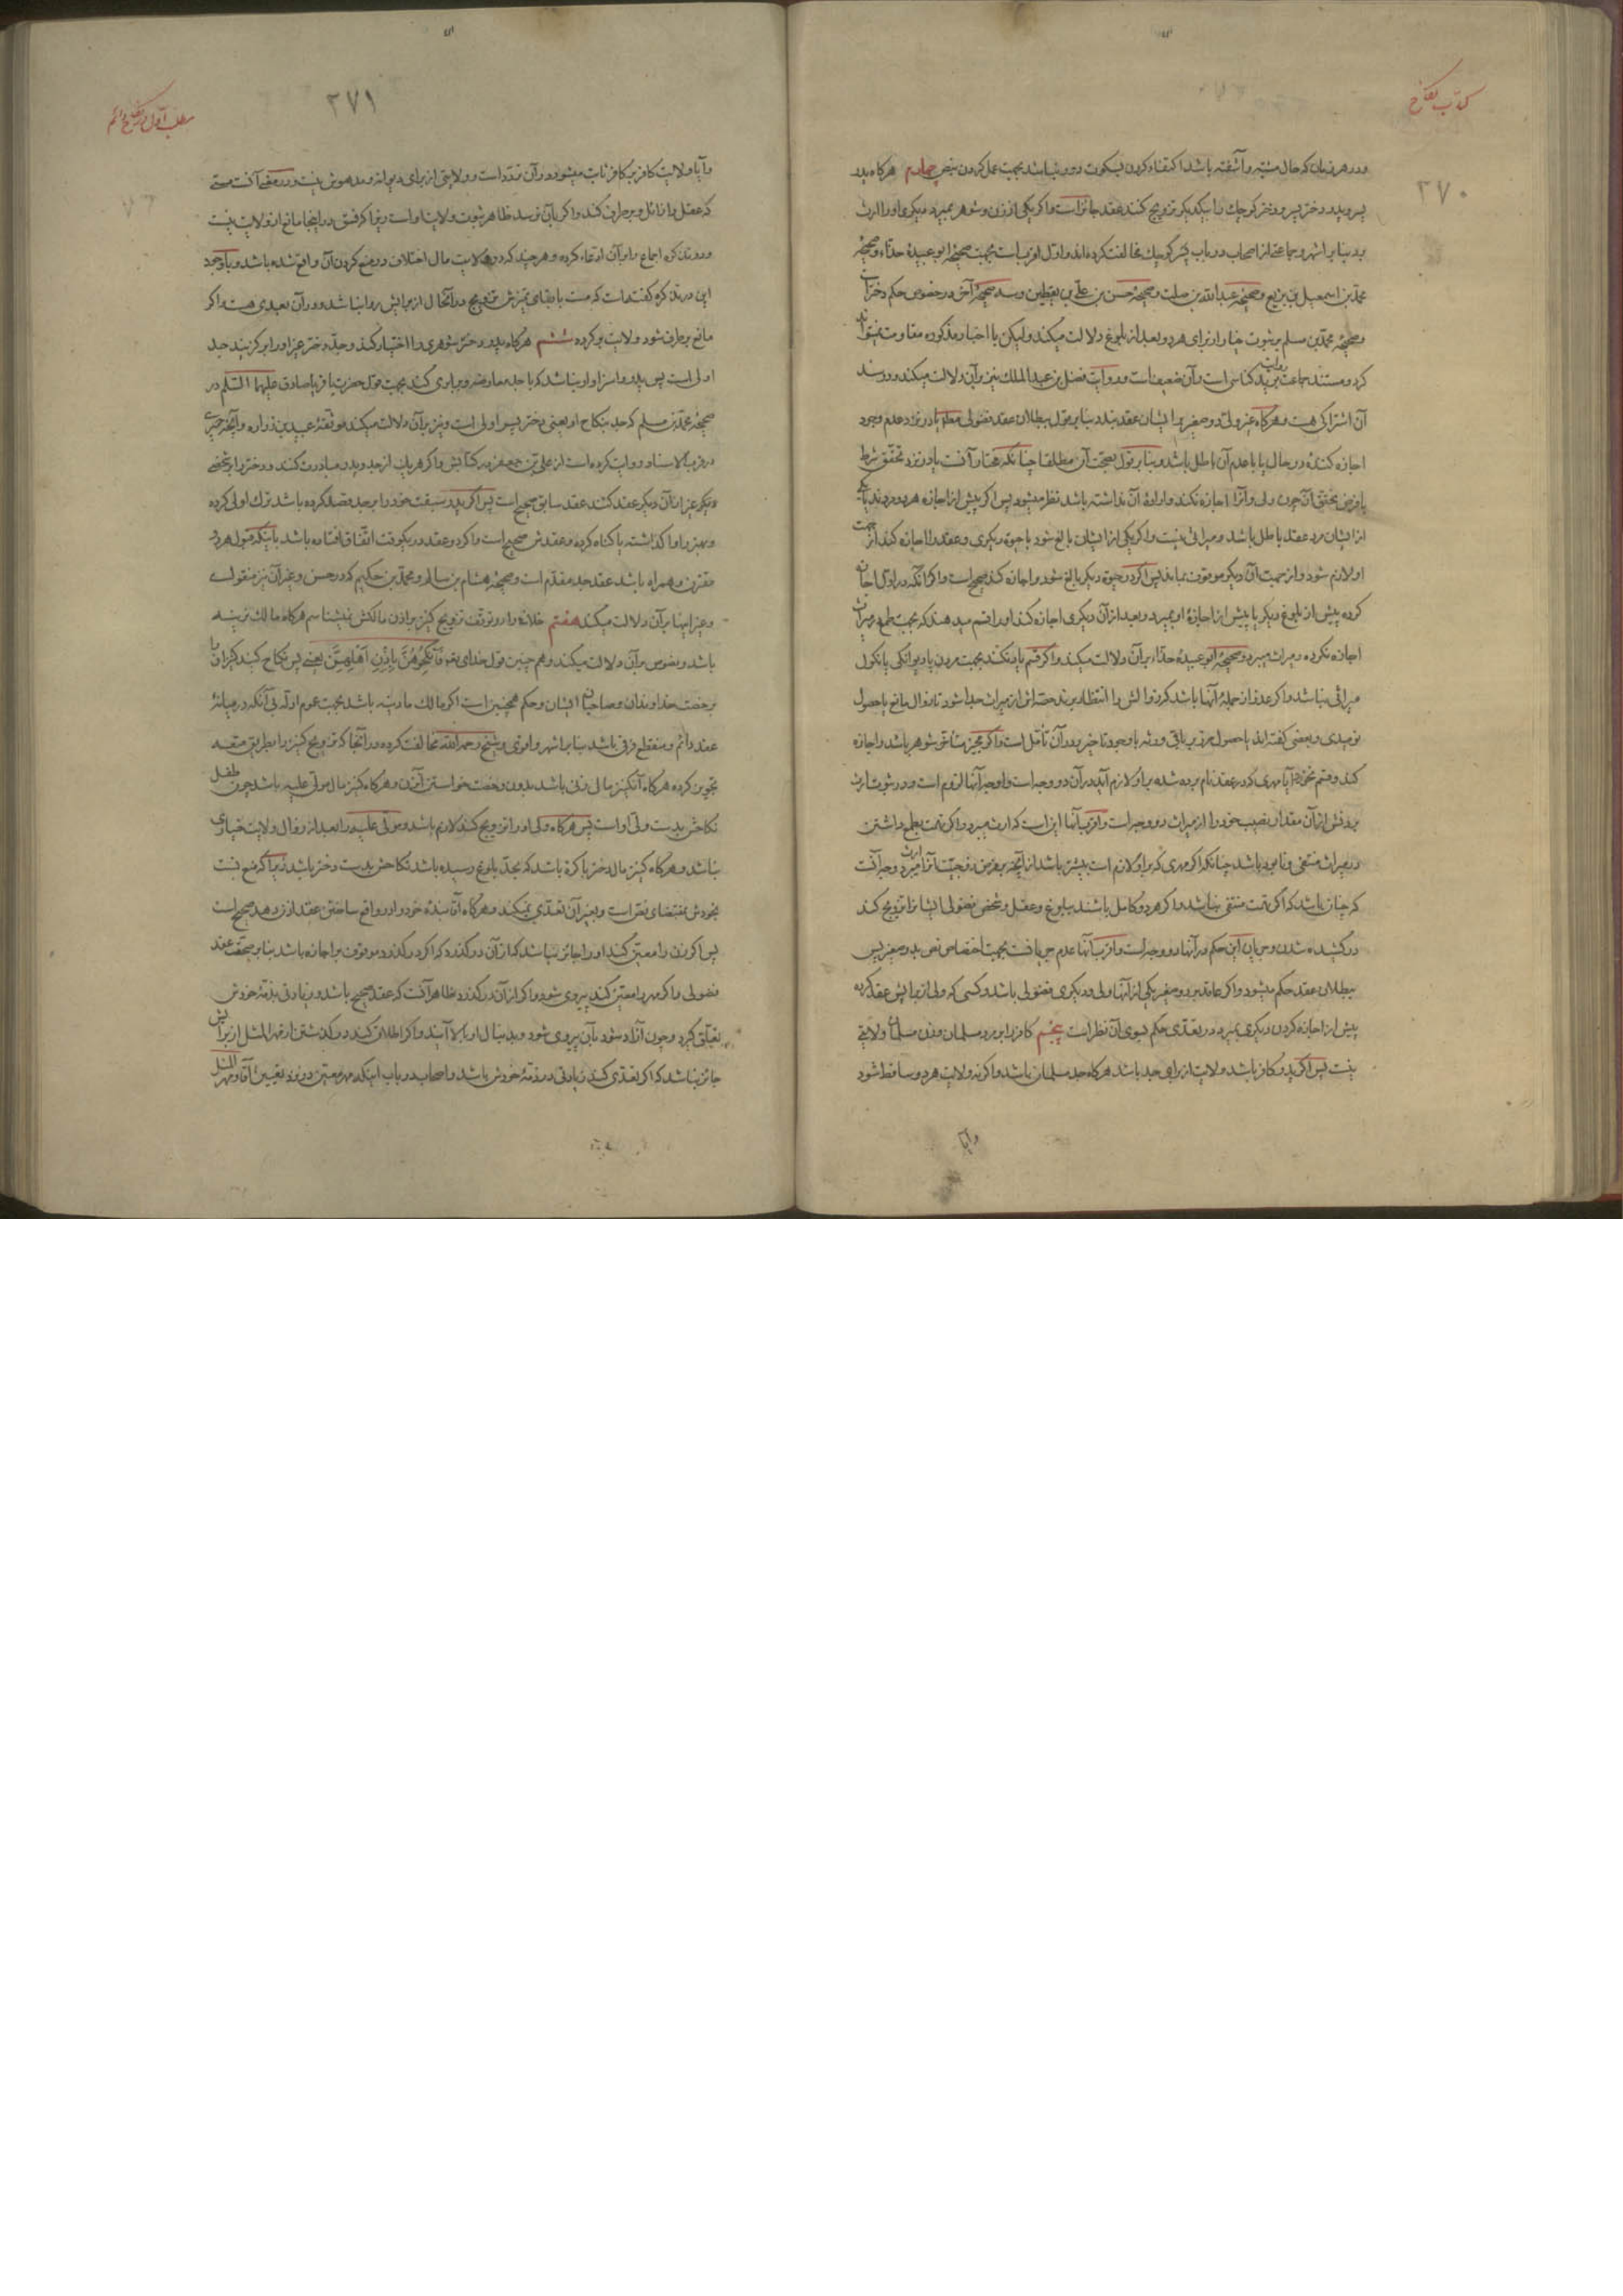 کتاب نکاح
۲۷۰
ودر هر زمان که حال مشتبه وآشفته باشد اکتفاء کردن بسکوت دور نباشد بجهت عمل کردن بنص چهارم هرگاه پدر
پسر وپدر دختر پسر ودختر کوچک را بیکدیگر تزویج کنند عقد جائز است واگر یکی از زن وشوهر بمیرد دیگری اورا ارث
برد بنابر اشهر وجماعتی از اصحاب در باب پسر کوچک مخالفت کرده اند واول اقرب است بجهت صحیحه ابو عبیدهٔ حذّاء وصحیحهٔ
محمد بن اسمعیل بن بزیع وصحیحه عبدالله بن صلت وصحیحهٔ حسن بن علی بن یقطین وسه صحیحهٔ آخر در خصوص حکم دختران
وصحیحه محمد بن مسلم بر ثبوت خیار از برای هر دو بعد از بلوغ دلالت میکند ولیکن با اخبار مذکوره مقاومت نمیتواند
کرد ومستند جماعت روایت یزید کناسی است وآن ضعیف است وروایت فضل بن عبدالملک نیز بر آن دلالت میکند ودر سند
آن اشتراکی هست وهرگاه غیر ولی دو صغیر را برای ایشان عقد بندد بنابر قول ببطلان عقد فضولی مطلقا یا در نزد عدم وجود
اجازه کننده در حال یا با عدم آن باطل باشد وبنابر قول بصحّت آن مطلقا چنانکه مختار آنست یا در نزد تحقّق شرط
یا فرض تحقق آن چون ولی وآنرا اجازه نکند واراده آن نداشته باشد نظر میشود پس اگر پیش از اجازه هر دو مردند یا یکی
از ایشان مرد عقد باطل باشد ومیراثی نیست واگر یکی از ایشان بالغ شود با حیوة دیگری وعقد را اجازه کند از جهت
او لازم شود واز جهت آن دیگر موقوف بماند پس اگر در حیوة دیگر بالغ شود واجازه کند صحیح است واگر آنکه در اول اجازه
کرده پیش از بلوغ دیگر یا پیش از اجازهٔ او بمیرد وبعد از آن دیگری اجازه کند او را قسم میدهند که بجهت طمع در میراث
اجازه نکرده ومیراث میبرد وصحیحهٔ ابو عبیدهٔ حذّاء بر آن دلالت میکند واگر قسم یاد نکند بجهت مردن یا دیوانگی یا نکول
میراثی نباشد واگر عذر از جملهٔ آنها باشد که زوالش را انتظار برند حصّه اش از میراث جدا شود تا زوال مانع یا حصول
نومیدی وبعضی گفته اند یا حصول ضرر بر باقی ورثه با وجود تاخیر ودر آن تأمّل است واگر مجیز متأخر شوهر باشد واجازه
کند وقسم نخورد آیا مهری که در عقد نام برده شده بر او لازم آید در آن دو وجه است واوجه آنها لزوم است ودر ثبوت ارث
بردنش از آن مقدار نصیب خود را از میراث دو وجه است واقرب آنها این است که ارث میبرد واگر تهمت بطمع داشتن
در میراث منتفی ونابود باشد چنانکه اگر مهری که بر او لازم است بیشتر باشد از آنچه بفرض زوجیّت آنرا ارث میبرد وجه آنست
که چنان باشد که اگر تهمت منتفی نباشد واگر هر دو کامل باشند ببلوغ وعقل وشخص فضولی ایشان را تزویج کند
در کشیده شدن وجریان این حکم در آنها دو وجه است واقرب آنها عدم جریانست بجهت اختصاص نص بدو صغیر پس
ببطلان عقد حکم میشود واگر عاقد بر دو صغیر یکی از آنها ولی ودیگری فضولی باشد وکسی که ولی از برایش عقد کرده
پیش از اجازه کردن دیگری بمیرد در تعدّی حکم بسوی آن نظر است پنجم کافر را بر مرد مسلمان وزن مسلمان ولایتی
نیست پس اگر پدر کافر باشد ولایت از برای جد باشد هرگاه جد مسلمان باشد واگر نه ولایت هر دو ساقط شود
وآیا
۲۷۱
مطلب اول در نکاح دائم
وآیا ولایت کافر بر کافر ثابت میشود در آن تردد است وولایتی از برای دیوانه ومدهوش نیست ودر معنی آنست مستی
که عقل را زائل وبرطرف کند واگر بآن نرسد ظاهر ثبوت ولایت او است زیرا که فسق در اینجا مانع از ولایت نیست
ودر تذکره اجماع را بر آن ادّعاء کرده وهر چند که در ولایت مال اختلاف در منع کردن آن واقع شده باشد وبا وجود
این در تذکره گفته است که مست با بقای تمیزش تزویج در آنحال از برایش روا نباشد ودر آن بعدی هست واگر
مانع برطرف شود ولایت برگردد ششم هرگاه پدر دختر شوهری را اختیار کند وجدّ دختر غیر او را برگزیند جد
اولی است پس پدر را سزاوار نباشد که با جد معارضه وبرابری کند بجهت قول حضرت باقر یا صادق علیهما السّلام در
صحیحهٔ محمّد بن مسلم که جد بنکاح او یعنی دختر پسر اولی است ونیز بر آن دلالت میکند موثّقهٔ عبید بن زراره وآنچه حمیری
در قرب الاسناد روایت کرده است از علی بن جعفر در کتابش واگر هر یک از جد وپدر مبادرت کنند ودختر را بشخصی
دیگر غیر از آن دیگر عقد کنند عقد سابق صحیح است پس اگر پدر سبقت خود را بر جد قصد کرده باشد ترک اولی کرده
وبهتر را وا گذاشته یا گناه کرده وعقدش صحیح است واگر دو عقد در یکوقت اتّفاق افتاده باشد باینکه قبول هر دو
مقترن وهمراه باشد عقد جد مقدّم است وصحیحهٔ هشام بن سالم ومحمّد بن حکیم که در حسن وغیر آن نیز منقول است
وغیر اینها بر آن دلالت میکند هفتم خلافی در توقف تزویج کنیز بر اذن مالکش نمیشناسم هرگاه مالک نرینه
باشد ونصوص بر آن دلالت میکند وهم چنین قول خدای تعالی فَانْکِحُوهُنَّ بِاِذْنِ اَهْلِهِنَّ یعنی پس نکاح کنید کنیزان را
برخصت خداوندان وصاحبان ایشان وحکم همچنین است اگر مالک مادینه باشد بجهت عموم ادلّه بی آنکه در میانهٔ
عقد دائم ومنقطع فرقی باشد بنابر اشهر واقوی وشیخ رحمه الله مخالفت کرده در آنجا که تزویج کنیز را بطریق متعه
تجویز کرده هرگاه آن کنیز مال زنی باشد بدون رخصت خواستن آنزن وهرگاه کنیز مال مولّی علیه باشد چون طفل
نکاحش بدست ولی او است پس هرگاه ولی او را تزویج کند لازم باشد ومولّی علیه را بعد از زوال ولایت خیاری
نباشد وهرگاه کنیز مال دختر باکره باشد که بحدّ بلوغ رسیده باشد نکاحش بدست دختر باشد زیرا که منع نسبت
بخودش بمقتضای نصّ است وبغیر آن تعدّی نمیکند وهرگاه آقا بندهٔ خود را در واقع ساختن عقد اذن دهد صحیح است
پس اگر زن را معیّن کند او را جائز نباشد که از آن در گذرد که اگر در گذرد موقوف بر اجازه باشد بنابر صحّت عقد
فضولی واگر مهر را معیّن کند پیروی شود واگر از آن در گذرد ظاهر آنست که عقد صحیح باشد وزیادتی بذمّهٔ خودش
تعلّق گیرد وچون آزاد شود بآن پیروی شود وبدنبال او بر آیند واگر اطلاق کند در گذشتن از مهر المثل از برایش
جائز نباشد که اگر تعدّی کند زیادتی در ذمّهٔ خودش باشد واصحاب در باب اینکه مهر معیّن در نزد تعیین آقا ومهر المثل